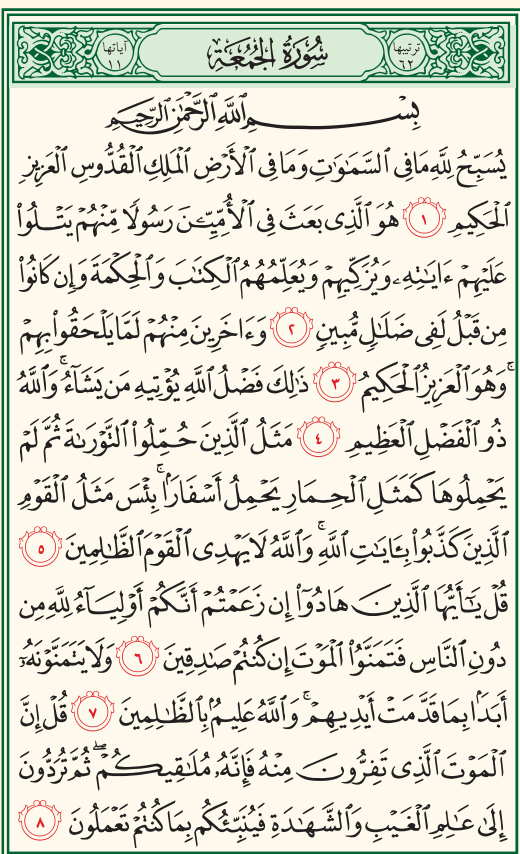 ترتيبها ٦٢
سُورَةُ الجُمُعَةِ
آياتها ١١
بِسْمِ ٱللَّهِ ٱلرَّحْمَٰنِ ٱلرَّحِيمِ
يُسَبِّحُ لِلَّهِ مَا فِى ٱلسَّمَٰوَٰتِ وَمَا فِى ٱلْأَرْضِ ٱلْمَلِكِ ٱلْقُدُّوسِ ٱلْعَزِيزِ
ٱلْحَكِيمِ ١ هُوَ ٱلَّذِى بَعَثَ فِى ٱلْأُمِّيِّـۧنَ رَسُولًا مِّنْهُمْ يَتْلُوا۟
عَلَيْهِمْ ءَايَٰتِهِۦ وَيُزَكِّيهِمْ وَيُعَلِّمُهُمُ ٱلْكِتَٰبَ وَٱلْحِكْمَةَ وَإِن كَانُوا۟
مِن قَبْلُ لَفِى ضَلَٰلٍ مُّبِينٍ ٢ وَءَاخَرِينَ مِنْهُمْ لَمَّا يَلْحَقُوا۟ بِهِمْ
ۚ وَهُوَ ٱلْعَزِيزُ ٱلْحَكِيمُ ٣ ذَٰلِكَ فَضْلُ ٱللَّهِ يُؤْتِيهِ مَن يَشَآءُ ۚ وَٱللَّهُ
ذُو ٱلْفَضْلِ ٱلْعَظِيمِ ٤ مَثَلُ ٱلَّذِينَ حُمِّلُوا۟ ٱلتَّوْرَىٰةَ ثُمَّ لَمْ
يَحْمِلُوهَا كَمَثَلِ ٱلْحِمَارِ يَحْمِلُ أَسْفَارًۢا ۚ بِئْسَ مَثَلُ ٱلْقَوْمِ
ٱلَّذِينَ كَذَّبُوا۟ بِـَٔايَٰتِ ٱللَّهِ ۚ وَٱللَّهُ لَا يَهْدِى ٱلْقَوْمَ ٱلظَّٰلِمِينَ ٥
قُلْ يَٰٓأَيُّهَا ٱلَّذِينَ هَادُوٓا۟ إِن زَعَمْتُمْ أَنَّكُمْ أَوْلِيَآءُ لِلَّهِ مِن
دُونِ ٱلنَّاسِ فَتَمَنَّوُا۟ ٱلْمَوْتَ إِن كُنتُمْ صَٰدِقِينَ ٦ وَلَا يَتَمَنَّوْنَهُۥٓ
أَبَدًۢا بِمَا قَدَّمَتْ أَيْدِيهِمْ ۚ وَٱللَّهُ عَلِيمٌۢ بِٱلظَّٰلِمِينَ ٧ قُلْ إِنَّ
ٱلْمَوْتَ ٱلَّذِى تَفِرُّونَ مِنْهُ فَإِنَّهُۥ مُلَٰقِيكُمْ ۖ ثُمَّ تُرَدُّونَ
إِلَىٰ عَٰلِمِ ٱلْغَيْبِ وَٱلشَّهَٰدَةِ فَيُنَبِّئُكُم بِمَا كُنتُمْ تَعْمَلُونَ ٨